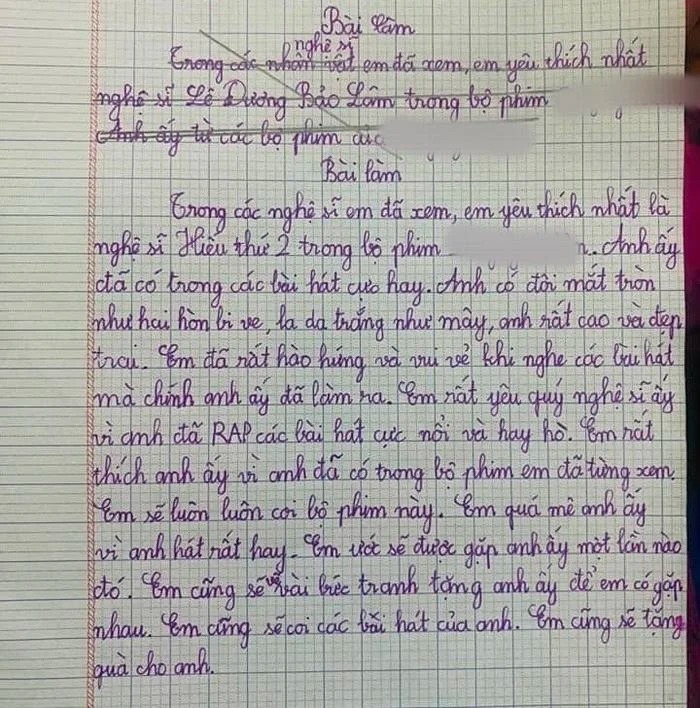 Bài làm
nghệ sĩ
Trong các nhân vật em đã xem, em yêu thích nhất
nghệ sĩ Lê Dương Bảo Lâm trong bộ phim
Anh ấy từ các bộ phim cực
Bài làm
Trong các nghệ sĩ em đã xem, em yêu thích nhất là
nghệ sĩ Hiếu thứ 2 trong bộ phim n. Anh ấy
đã có trong các bài hát cực hay. Anh có đôi mắt tròn
như hai hòn bi ve, la da trắng như mây, anh rất cao và đẹp
trai. Em đã rất hào hứng và vui vẻ khi nghe các bài hát
mà chính anh ấy đã làm ra. Em rất yêu quý nghệ sĩ ấy
vì anh đã RAP các bài hat cực nổi và hay hò. Em rất
thích anh ấy vì anh đã có trong bộ phim em đã từng xem.
Em sẽ luôn luôn coi bộ phim này. Em quá mê anh ấy
vì anh hát rất hay. Em ước sẽ được gặp anh ấy một lần nào
đó. Em cũng sẽ vẽ vài bức tranh tặng anh ấy để em có gặp
nhau. Em cũng sẽ coi các bài hát của anh. Em cũng sẽ tặng
quà cho anh.